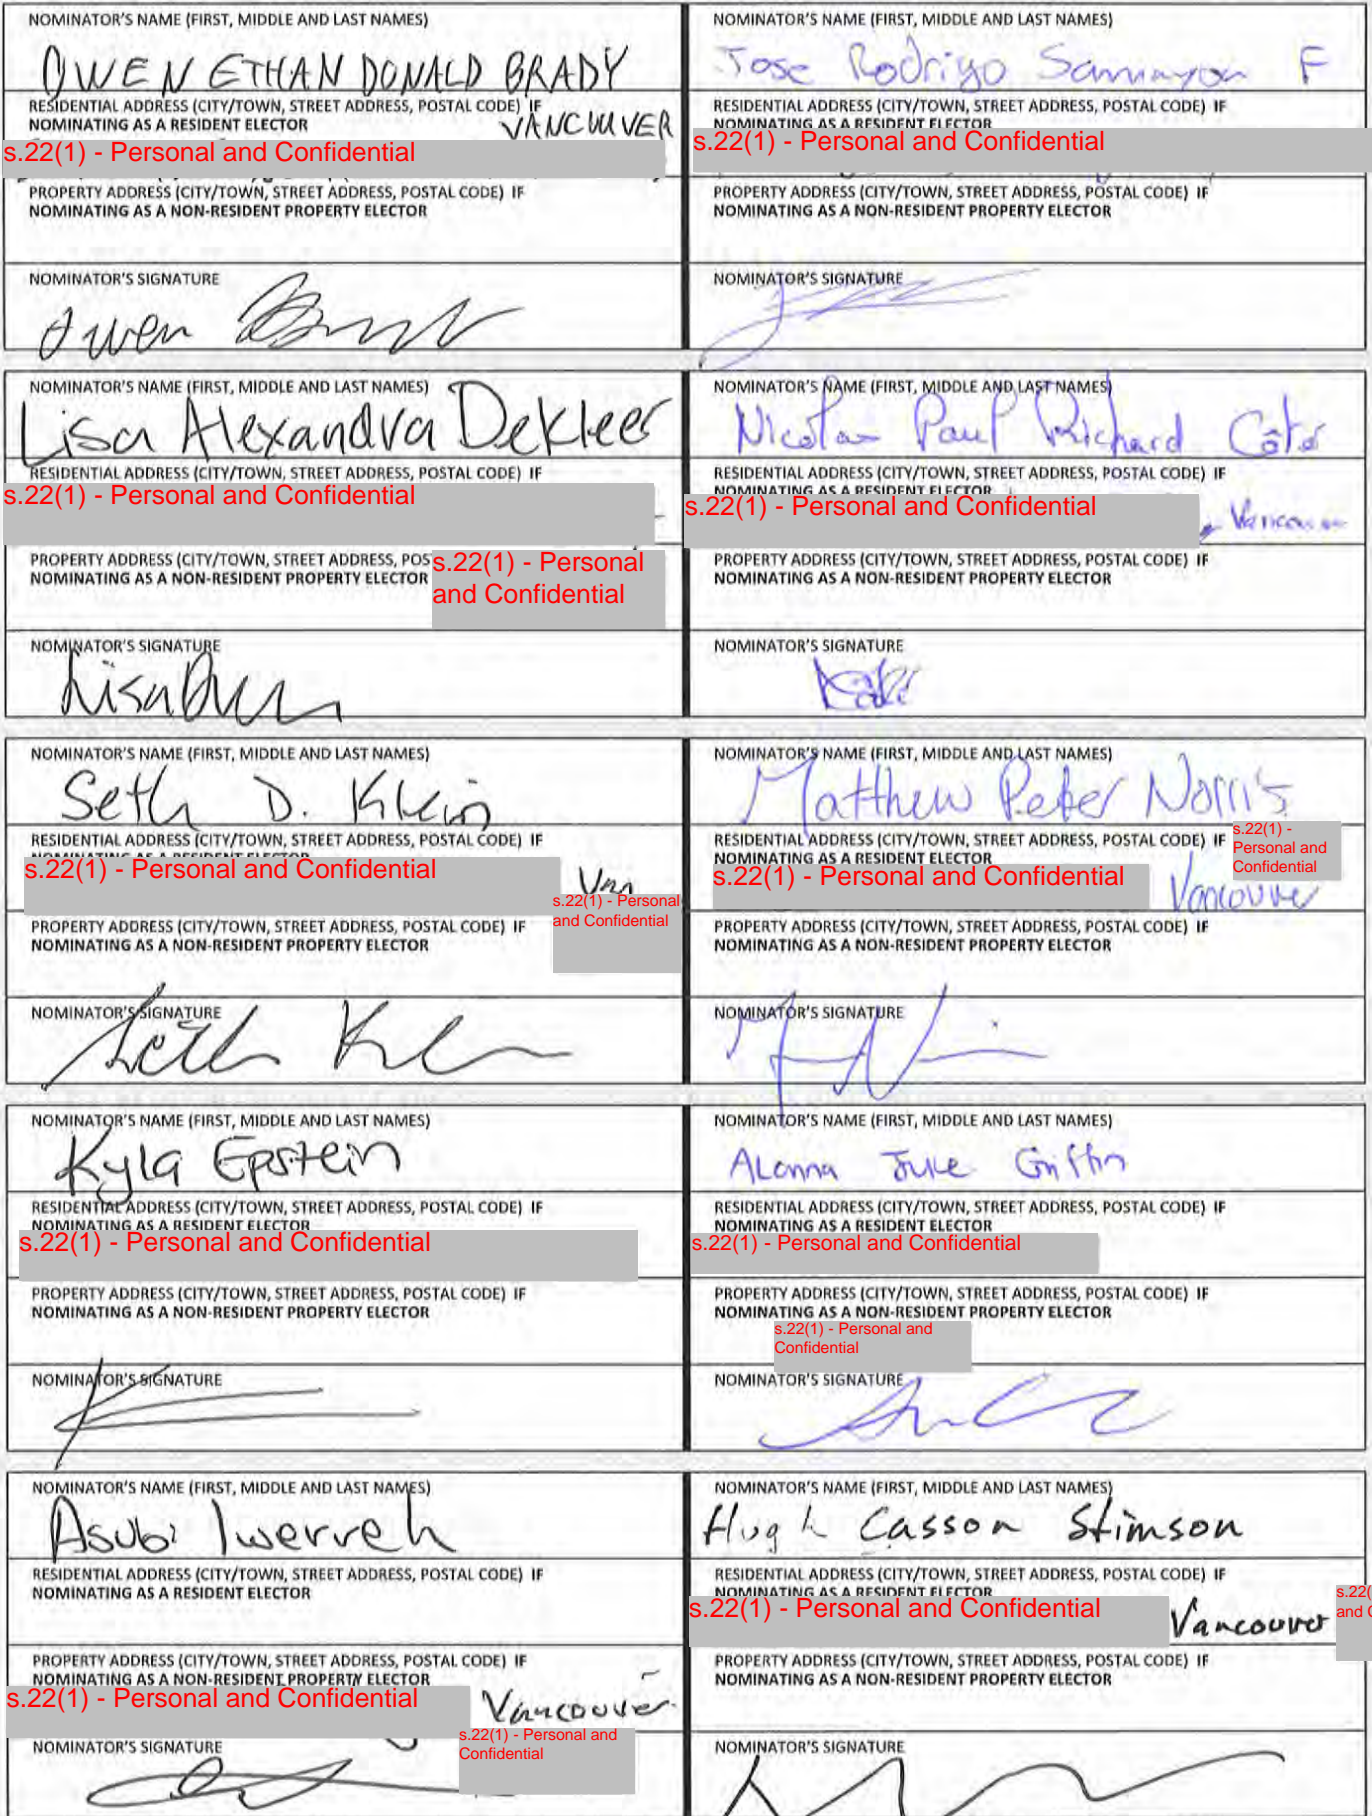 NOMINATOR'S NAME (FIRST, MIDDLE AND LAST NAMES)
OWEN ETHAN DONALD BRADY
RESIDENTIAL ADDRESS (CITY/TOWN, STREET ADDRESS, POSTAL CODE) IF
NOMINATING AS A RESIDENT ELECTOR
VANCOUVER
s.22(1) - Personal and Confidential
PROPERTY ADDRESS (CITY/TOWN, STREET ADDRESS, POSTAL CODE) IF
NOMINATING AS A NON-RESIDENT PROPERTY ELECTOR
NOMINATOR'S SIGNATURE
Owen
NOMINATOR'S NAME (FIRST, MIDDLE AND LAST NAMES)
Jose Rodrigo Samayoa F
RESIDENTIAL ADDRESS (CITY/TOWN, STREET ADDRESS, POSTAL CODE) IF
NOMINATING AS A RESIDENT ELECTOR
s.22(1) - Personal and Confidential
PROPERTY ADDRESS (CITY/TOWN, STREET ADDRESS, POSTAL CODE) IF
NOMINATING AS A NON-RESIDENT PROPERTY ELECTOR
NOMINATOR'S SIGNATURE
NOMINATOR'S NAME (FIRST, MIDDLE AND LAST NAMES)
Lisa Alexandra DeKleer
RESIDENTIAL ADDRESS (CITY/TOWN, STREET ADDRESS, POSTAL CODE) IF
s.22(1) - Personal and Confidential
PROPERTY ADDRESS (CITY/TOWN, STREET ADDRESS, POS
NOMINATING AS A NON-RESIDENT PROPERTY ELECTOR
s.22(1) - Personal
and Confidential
NOMINATOR'S SIGNATURE
Lisa
NOMINATOR'S NAME (FIRST, MIDDLE AND LAST NAMES)
Nicolas Paul Richard Côté
RESIDENTIAL ADDRESS (CITY/TOWN, STREET ADDRESS, POSTAL CODE) IF
NOMINATING AS A RESIDENT ELECTOR
s.22(1) - Personal and Confidential
Vancouver
PROPERTY ADDRESS (CITY/TOWN, STREET ADDRESS, POSTAL CODE) IF
NOMINATING AS A NON-RESIDENT PROPERTY ELECTOR
NOMINATOR'S SIGNATURE
NOMINATOR'S NAME (FIRST, MIDDLE AND LAST NAMES)
Seth D. Klein
RESIDENTIAL ADDRESS (CITY/TOWN, STREET ADDRESS, POSTAL CODE) IF
NOMINATING AS A RESIDENT ELECTOR
s.22(1) - Personal and Confidential
Van
s.22(1) - Personal
and Confidential
PROPERTY ADDRESS (CITY/TOWN, STREET ADDRESS, POSTAL CODE) IF
NOMINATING AS A NON-RESIDENT PROPERTY ELECTOR
NOMINATOR'S SIGNATURE
Seth Kl
NOMINATOR'S NAME (FIRST, MIDDLE AND LAST NAMES)
Matthew Peter Norris
RESIDENTIAL ADDRESS (CITY/TOWN, STREET ADDRESS, POSTAL CODE) IF
NOMINATING AS A RESIDENT ELECTOR
s.22(1) -
Personal and
Confidential
s.22(1) - Personal and Confidential
Vancouver
PROPERTY ADDRESS (CITY/TOWN, STREET ADDRESS, POSTAL CODE) IF
NOMINATING AS A NON-RESIDENT PROPERTY ELECTOR
NOMINATOR'S SIGNATURE
NOMINATOR'S NAME (FIRST, MIDDLE AND LAST NAMES)
Kyla Epstein
RESIDENTIAL ADDRESS (CITY/TOWN, STREET ADDRESS, POSTAL CODE) IF
NOMINATING AS A RESIDENT ELECTOR
s.22(1) - Personal and Confidential
PROPERTY ADDRESS (CITY/TOWN, STREET ADDRESS, POSTAL CODE) IF
NOMINATING AS A NON-RESIDENT PROPERTY ELECTOR
NOMINATOR'S SIGNATURE
NOMINATOR'S NAME (FIRST, MIDDLE AND LAST NAMES)
Alanna Griffin
RESIDENTIAL ADDRESS (CITY/TOWN, STREET ADDRESS, POSTAL CODE) IF
NOMINATING AS A RESIDENT ELECTOR
s.22(1) - Personal and Confidential
PROPERTY ADDRESS (CITY/TOWN, STREET ADDRESS, POSTAL CODE) IF
NOMINATING AS A NON-RESIDENT PROPERTY ELECTOR
s.22(1) - Personal and
Confidential
NOMINATOR'S SIGNATURE
NOMINATOR'S NAME (FIRST, MIDDLE AND LAST NAMES)
Asubi Iwerreh
RESIDENTIAL ADDRESS (CITY/TOWN, STREET ADDRESS, POSTAL CODE) IF
NOMINATING AS A RESIDENT ELECTOR
PROPERTY ADDRESS (CITY/TOWN, STREET ADDRESS, POSTAL CODE) IF
NOMINATING AS A NON-RESIDENT PROPERTY ELECTOR
s.22(1) - Personal and Confidential
Vancouver
s.22(1) - Personal and
Confidential
NOMINATOR'S SIGNATURE
NOMINATOR'S NAME (FIRST, MIDDLE AND LAST NAMES)
Hugh Casson Stimson
RESIDENTIAL ADDRESS (CITY/TOWN, STREET ADDRESS, POSTAL CODE) IF
NOMINATING AS A RESIDENT ELECTOR
s.22(1) - Personal and Confidential
Vancouver
s.22(
and C
PROPERTY ADDRESS (CITY/TOWN, STREET ADDRESS, POSTAL CODE) IF
NOMINATING AS A NON-RESIDENT PROPERTY ELECTOR
NOMINATOR'S SIGNATURE